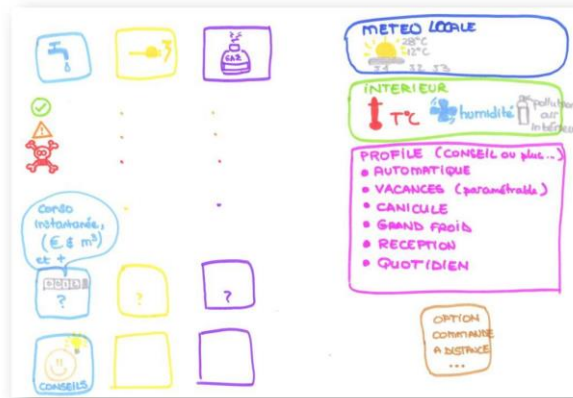 GAZ
conso
instantanée,
(€ & m³)
et +
?
?
?
CONSEILS
METEO LOCALE
28°C
12°C
J1 J2 J3
INTERIEUR
T°C
humidité
pollution
air
intérieur
PROFILE (CONSEIL ou plus...)
• AUTOMATIQUE
• VACANCES (paramétrable)
• CANICULE
• GRAND FROID
• RECEPTION
• QUOTIDIEN
OPTION
COMMANDE
A DISTANCE
...